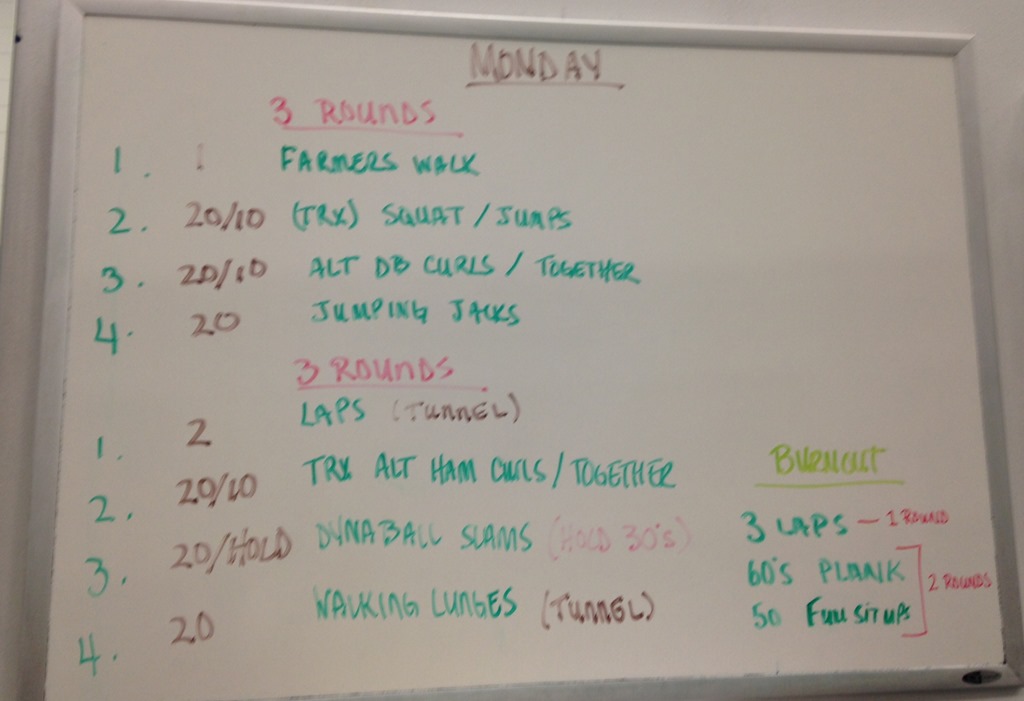 MONDAY
3 ROUNDS
1. 1 FARMERS WALK
2. 20/10 (TRX) SQUAT / JUMPS
3. 20/10 ALT DB CURLS / TOGETHER
4. 20 JUMPING JACKS
3 ROUNDS
1. 2 LAPS (TUNNEL)
2. 20/10 TRX ALT HAM CURLS / TOGETHER
3. 20/HOLD DYNABALL SLAMS (HOLD 30's)
4. 20 WALKING LUNGES (TUNNEL)
BURNOUT
3 LAPS - 1 ROUND
60's PLANK
50 FULL SIT UPS
2 ROUNDS